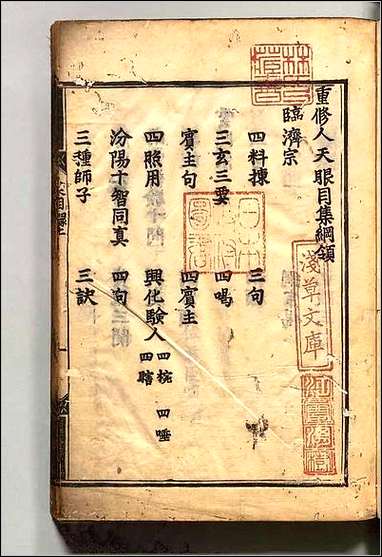 重修人天眼目集綱領
臨濟宗
四料揀 三句
三玄三要 四喝
賓主句 四賓主
四照用 興化驗人 四椀 四唾 四瞎
汾陽十智同真 四句三
三種師子 三訣
淺草文庫
日本